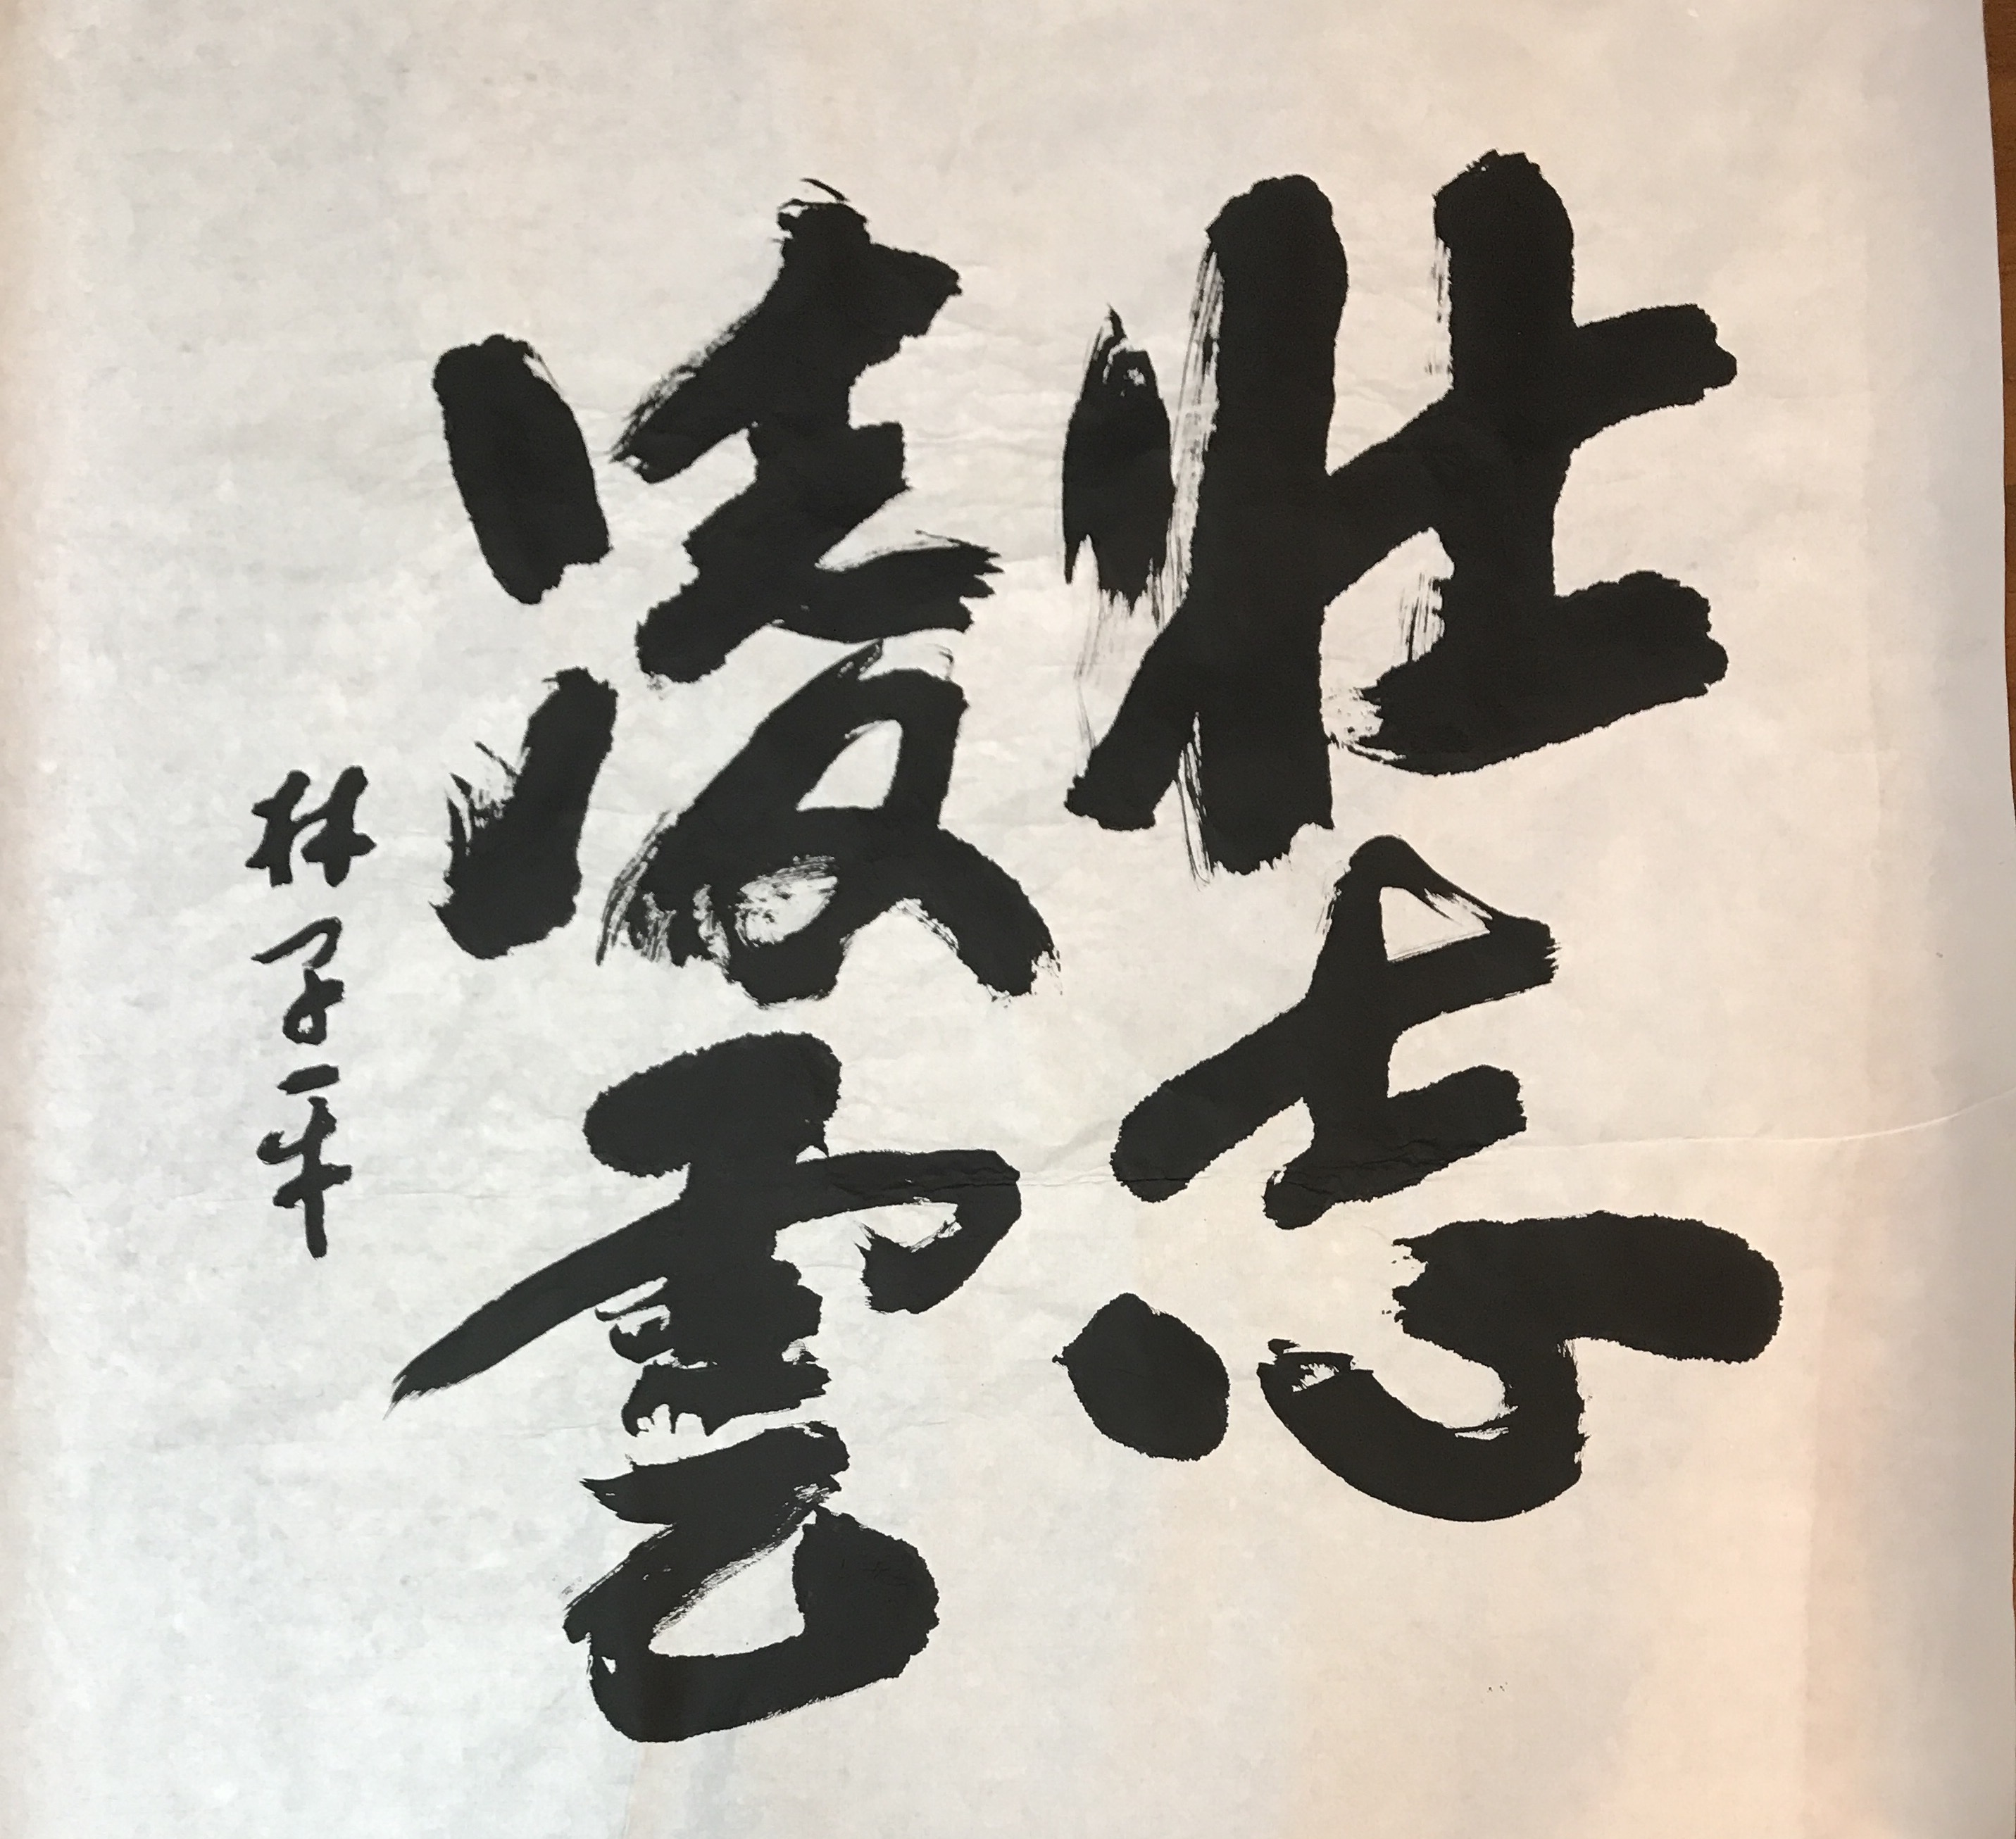 壮志
凌雲
林子平